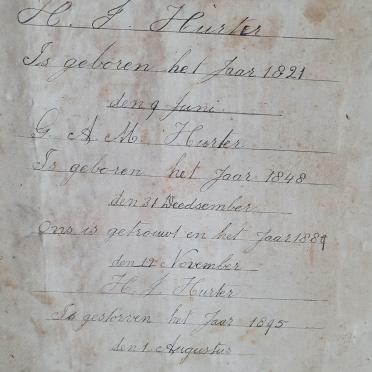 H. J. Hurter
Is geboren het Jaar 1821
den 9 Juni
G A M. Hurter
Is geboren het Jaar 1848
den 31 Deedsember
Ons is getrouwt en het Jaar 1889
den 12 November
H. J Hurter
Is gestorven het Jaar 1895
den 1 Augustus